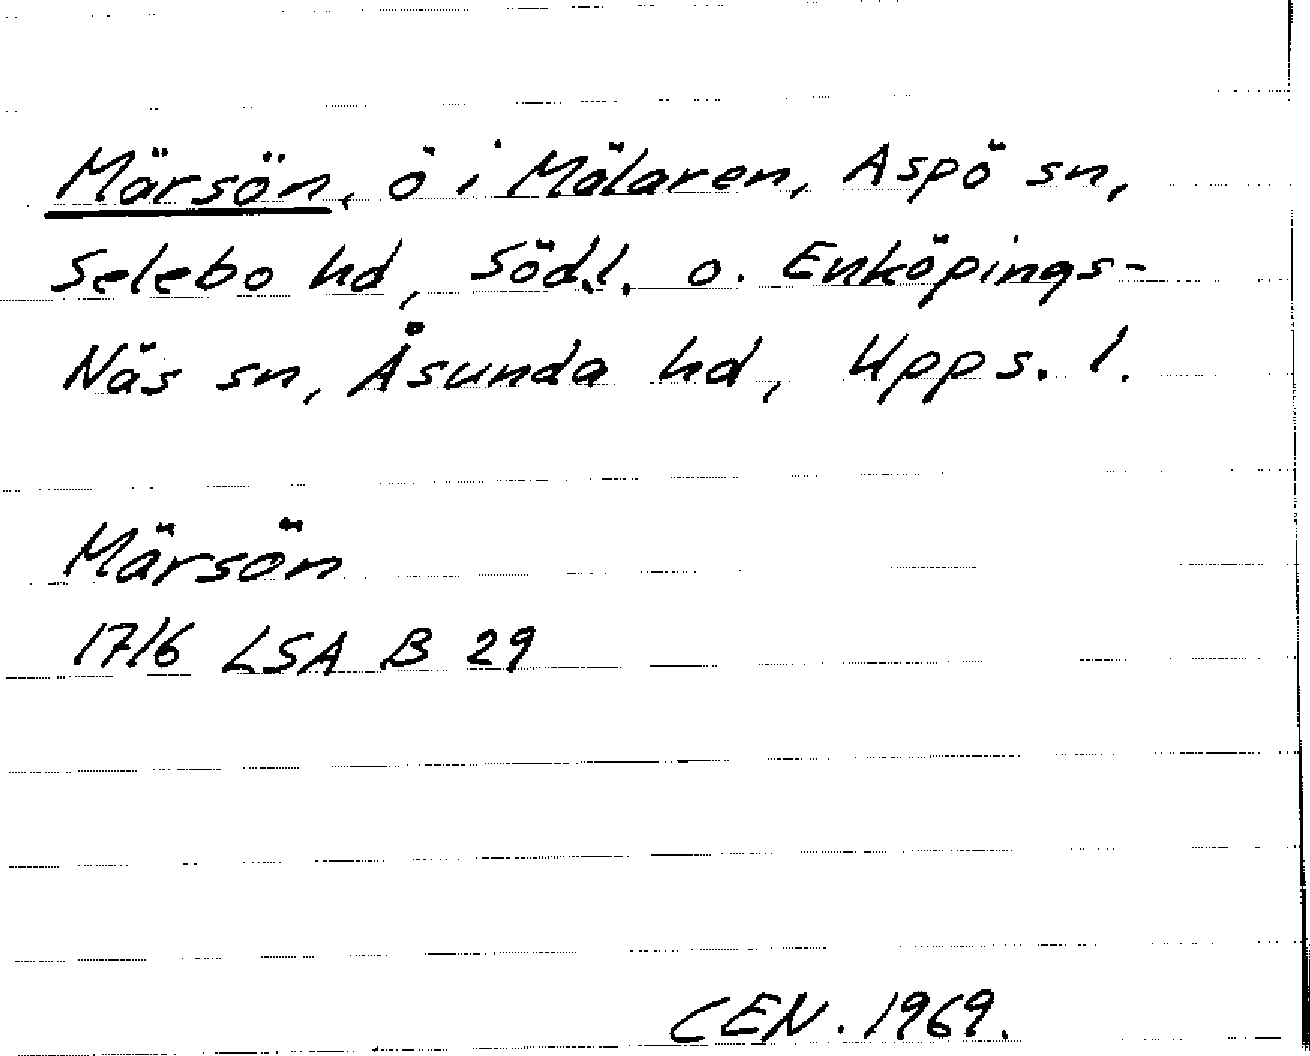 Märsön, ö i Mälaren, Aspö sn,
Selebo hd, Södl. o. Enköpings-
Näs sn, Åsunda hd, Upps. l.
Märsön
1716 LSA B 29
CEN. 1969.